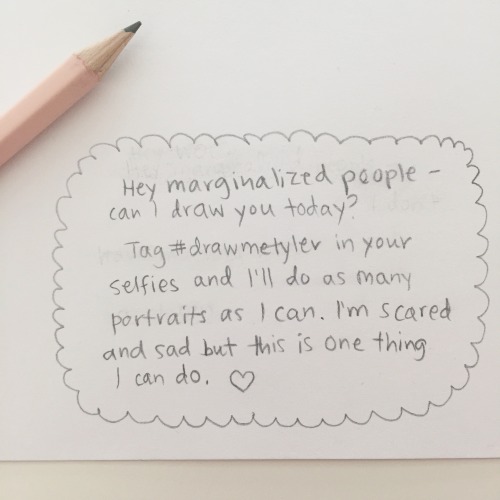 Hey marginalized people -
can I draw you today?
Tag #drawmetyler in your
selfies and I'll do as many
portraits as I can. I'm scared
and sad but this is one thing
I can do. ♡